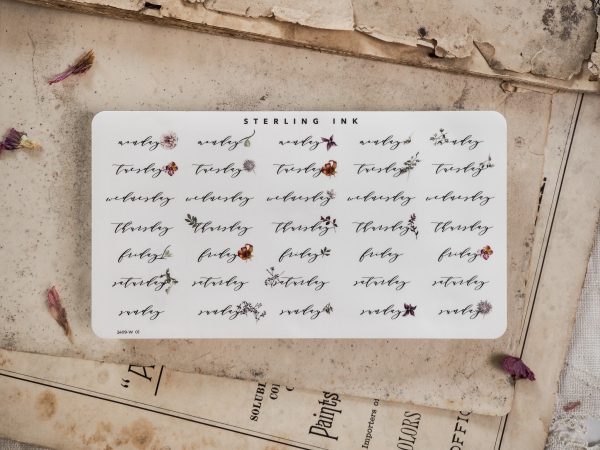 STERLING INK
monday monday monday monday monday
tuesday tuesday tuesday tuesday tuesday
wednesday wednesday wednesday wednesday wednesday
thursday thursday thursday thursday thursday
friday friday friday friday friday
saturday saturday saturday saturday saturday
sunday sunday sunday sunday sunday
"A
SOLUBL
Paints
Importers of
COLORS
OFFIC